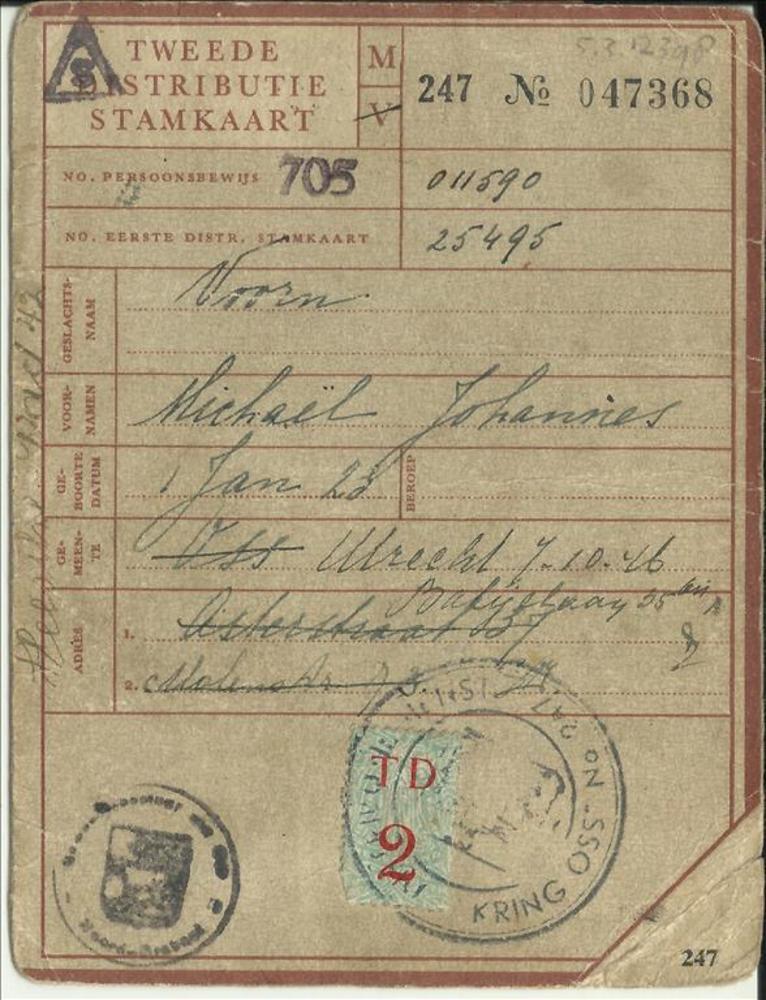 TWEEDE
DISTRIBUTIE
STAMKAART
M
V
5.3.12398
247 No 047368
NO. PERSOONSBEWIJS 705 011590
NO. EERSTE DISTR. STAMKAART 25495
GESLACHTS-
NAAM
Voorn
VOOR-
NAMEN
Michaël Johannes
GE-
BOORTE
DATUM
1 Jan 23
BEROEP
GE-
MEEN-
TE
Oss Utrecht 7.10.46
ADRES
1.
Asterstraat 37
2. Molenstr.
TD
2
247 No
KRING OSS
Noord-Brabant
247